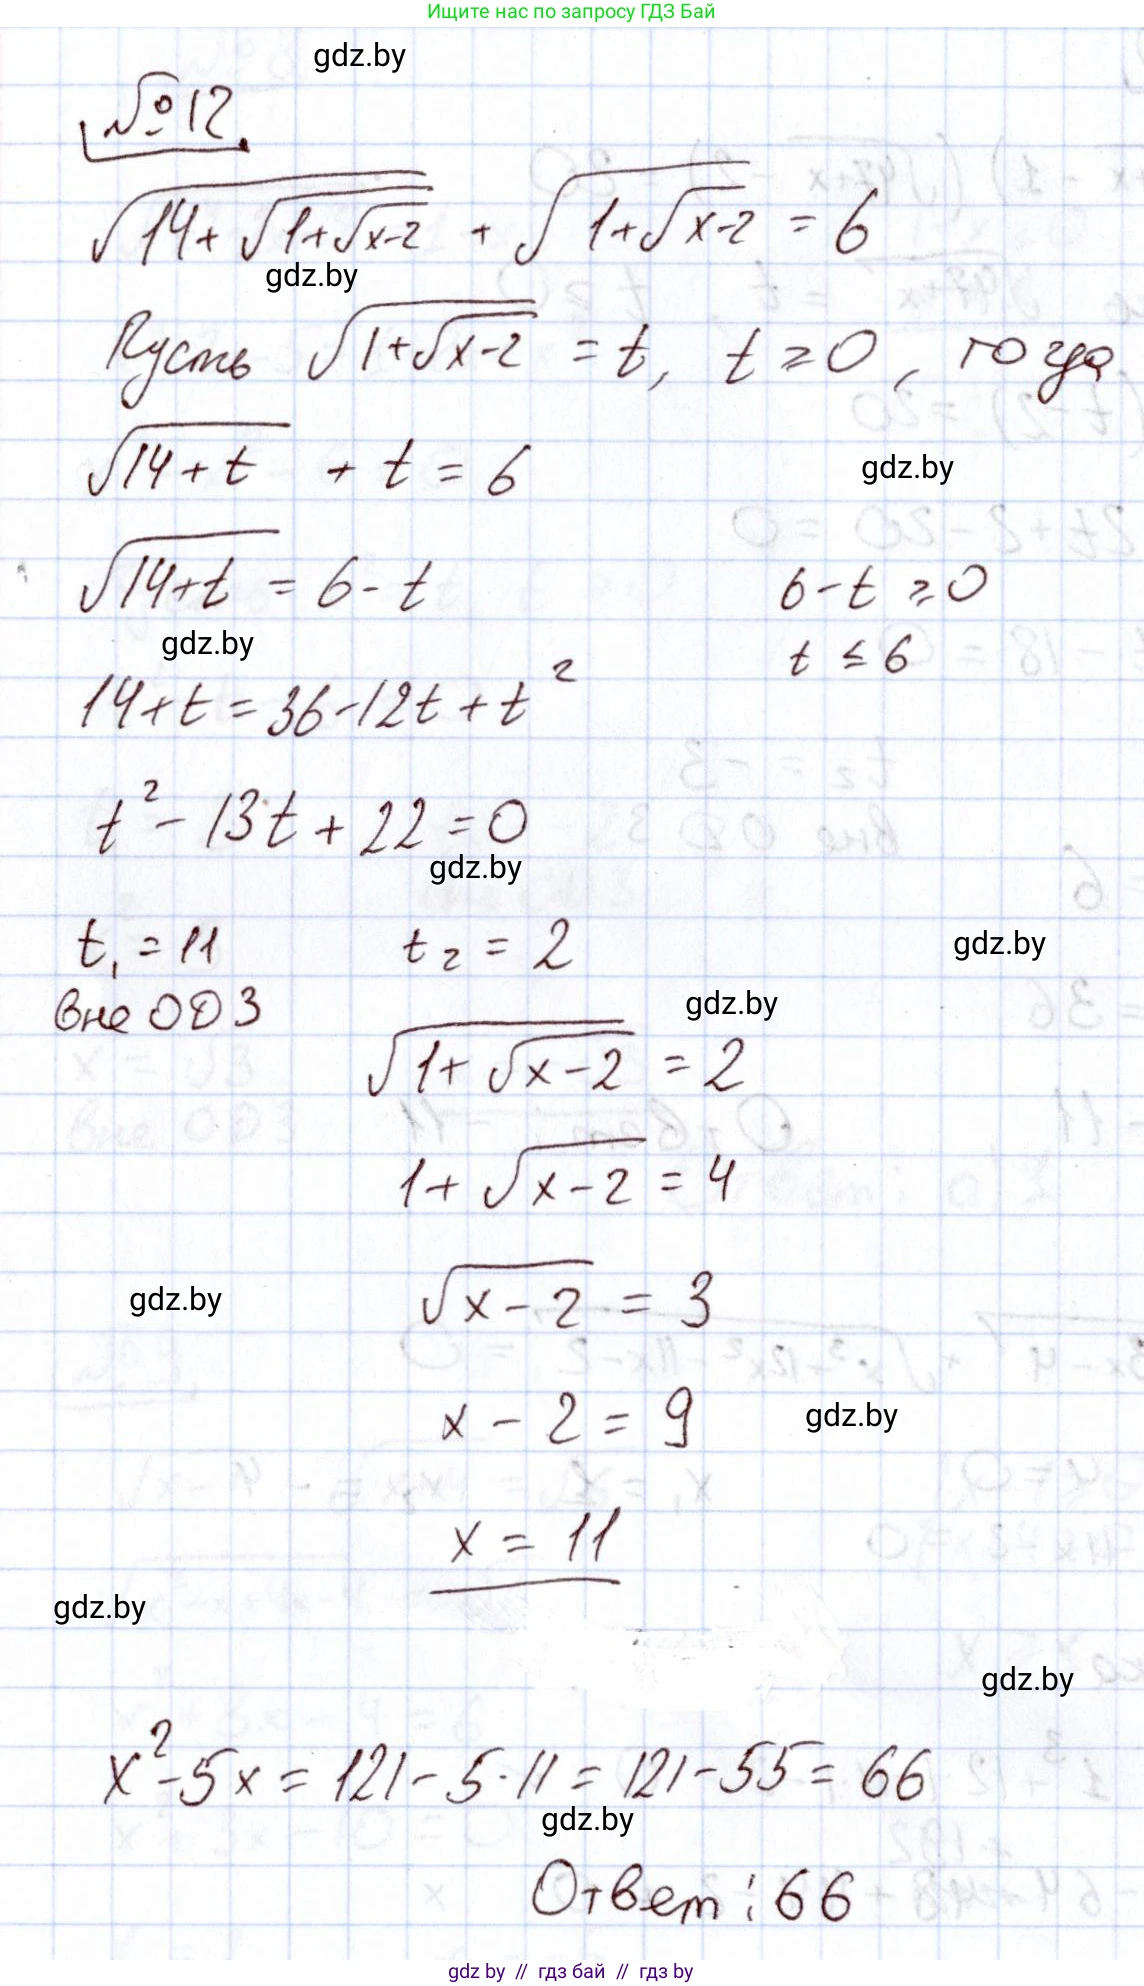 Ищите нас по запросу ГДЗ Бай
gdz.by
№12
√(14+√(1+√(x-2))) + √(1+√(x-2)) = 6
gdz.by
Пусть √(1+√(x-2)) = t, t ≥ 0, тогда
√(14+t) + t = 6
gdz.by
√(14+t) = 6-t 6-t ≥ 0
gdz.by
t ≤ 6
14+t = 36-12t+t²
t²-13t+22=0
gdz.by
t₁ = 11 t₂ = 2
gdz.by
вне ОДЗ
gdz.by
√(1+√(x-2)) = 2
1+√(x-2) = 4
gdz.by
√(x-2) = 3
x-2 = 9
gdz.by
x = 11
gdz.by
gdz.by
x²-5x = 121-5·11 = 121-55 = 66
gdz.by
Ответ: 66
gdz by // гдз бай // гдз by